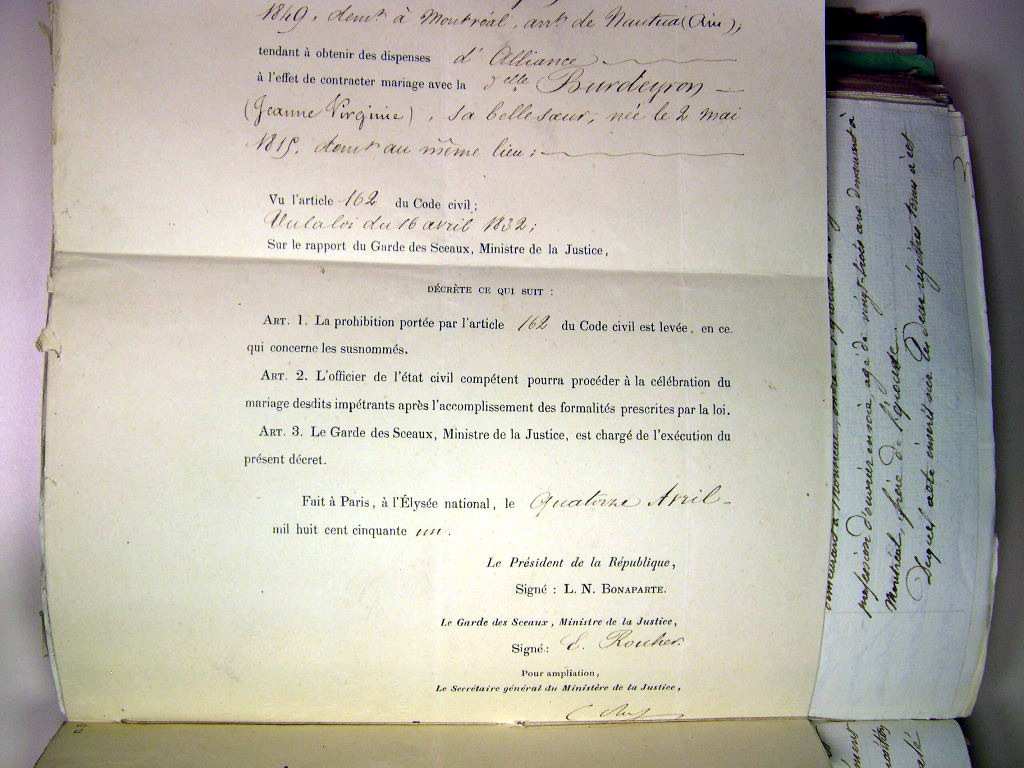 1849. demt à Montréal, arrt de Nantua (Ain),
tendant à obtenir des dispenses d'Alliance
à l'effet de contracter mariage avec la Delle Burdeyron
(Jeanne Virginie), sa belle sœur, née le 2 mai
1815. demt au même lieu;
Vu l'article 162 du Code civil;
Vu la loi du 16 avril 1832;
Sur le rapport du Garde des Sceaux, Ministre de la Justice,
DÉCRÈTE CE QUI SUIT :
ART. 1. La prohibition portée par l'article 162 du Code civil est levée, en ce
qui concerne les susnommés.
ART. 2. L'officier de l'état civil compétent pourra procéder à la célébration du
mariage desdits impétrants après l'accomplissement des formalités prescrites par la loi.
ART. 3. Le Garde des Sceaux, Ministre de la Justice, est chargé de l'exécution du
présent décret.
Fait à Paris, à l'Élysée national, le quatorze Avril
mil huit cent cinquante un.
Le Président de la République,
Signé : L. N. BONAPARTE.
Le Garde des Sceaux, Ministre de la Justice,
Signé : E. Rouher.
Pour ampliation,
Le Secrétaire général du Ministère de la Justice,
profession d'ouvrier en soie, agé de vingt trois ans demeurant à
Montréal, frère de l'épouse
Duquel acte inscrit sur les deux régistres tenus à cet